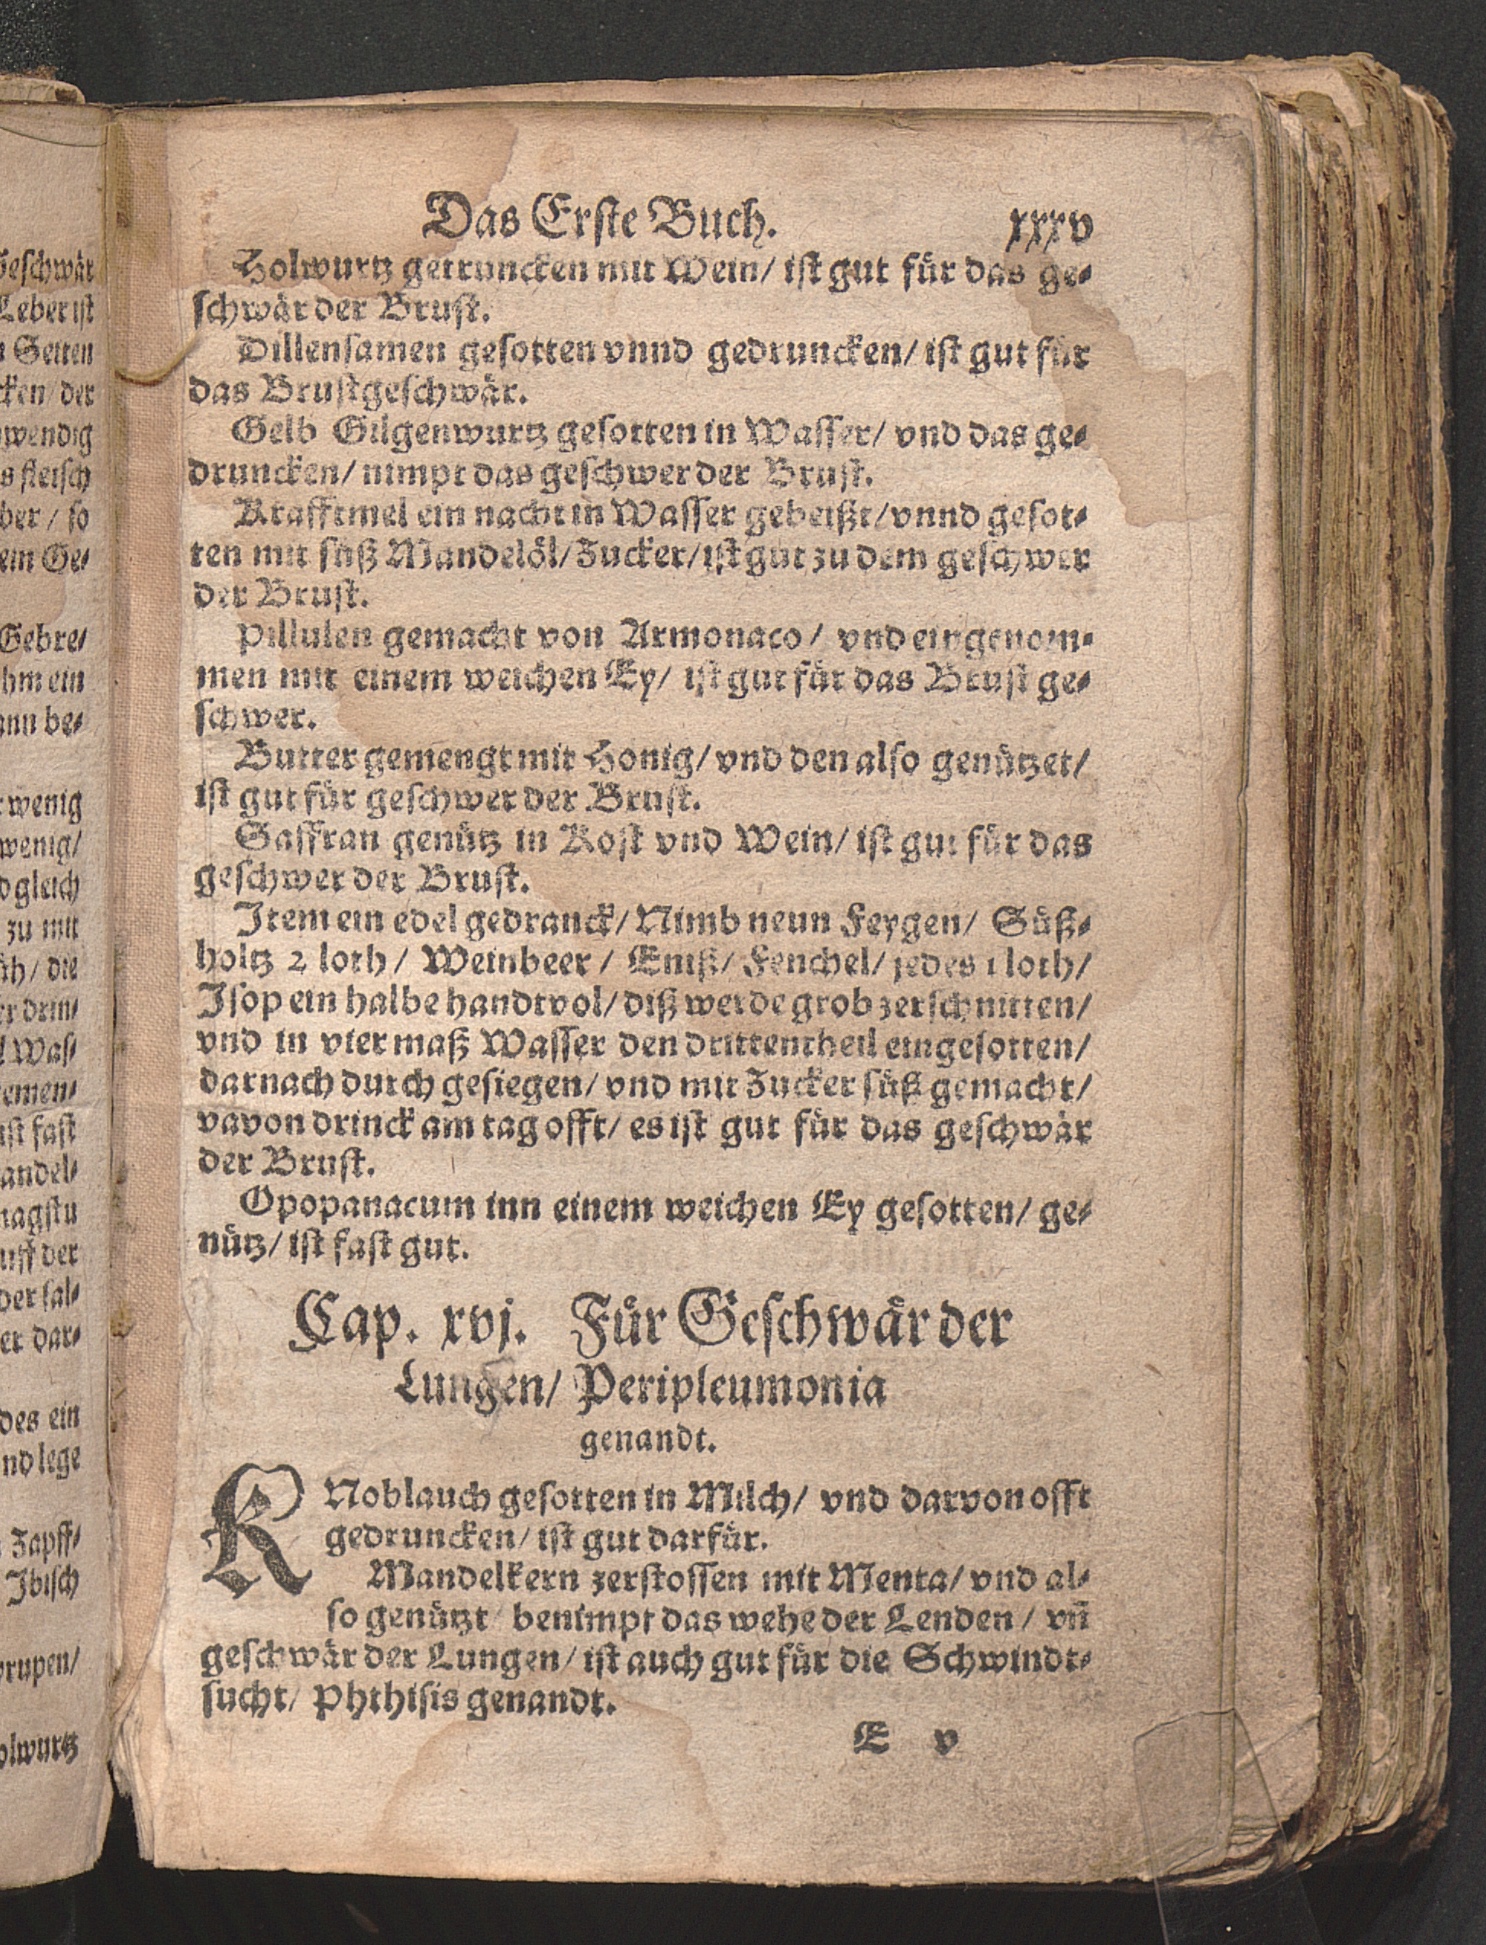 Das Erste Buch. xxxv
Holwurtz getruncken mit Wein/ ist gut für das ge⸗
schwär der Brust.
Dillensamen gesotten vnnd gedruncken/ ist gut für
das Brustgeschwär.
Gelb Gilgenwurtz gesotten in Wasser/ vnd das ge⸗
druncken/ nimpt das geschwer der Brust.
Krafftmel ein nacht in Wasser gebeißt/ vnnd gesot⸗
ten mit süß Mandelöl/ Zucker/ ist gut zu dem geschwer
der Brust.
Pillulen gemacht von Armonaco/ vnd eingenom⸗
men mit einem weichen Ey/ ist gut für das Brust ge⸗
schwer.
Butter gemengt mit Honig/ vnd den also genützet/
ist gut für geschwer der Brust.
Saffran genütz in Kost vnd Wein/ ist gut für das
geschwer der Brust.
Item ein edel gedranck/ Nimb neun Feygen/ Süß⸗
holtz 2 loth/ Weinbeer/ Eniß/ Fenchel/ jedes 1 loth/
Isop ein halbe handtvol/ diß werde grob zerschnitten/
vnd in vier maß Wasser den drittentheil eingesotten/
darnach durch gesiegen/ vnd mit Zucker süß gemacht/
vavon drinck am tag offt/ es ist gut für das geschwär
der Brust.
Opopanacum inn einem weichen Ey gesotten/ ge⸗
nütz/ ist fast gut.
Cap. xvj. Für Geschwär der
Lungen/ Peripleumonia
genandt.
KNoblauch gesotten in Milch/ vnd darvon offt
gedruncken/ ist gut darfür.
Mandelkern zerstossen mit Menta/ vnd al⸗
so genützt/ benimpt das wehe der Lenden/ vñ
geschwär der Lungen/ ist auch gut für die Schwindt⸗
sucht/ Phthisis genandt.
E v